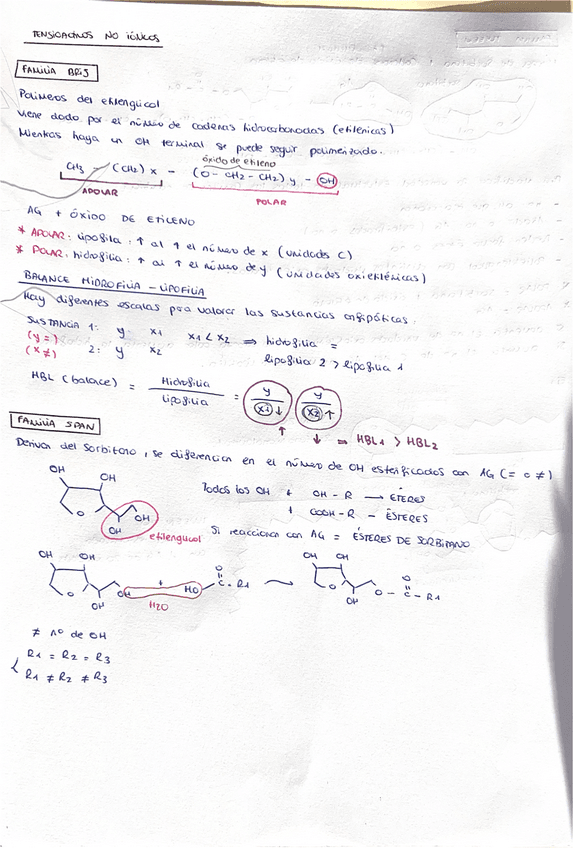 TENSIOACTIVOS NO IÓNICOS
FAMILIA BRIJ
Polímeros del etilenglicol
viene dado por el número de cadenas hidrocarbonadas (etilénicas)
Mientras haya un OH terminal se puede seguir polimerizado.
óxido de etileno
CH3 - (CH2) x - (O - CH2 - CH2) y - OH
APOLAR
POLAR
AG + ÓXIDO DE ETILENO
* APOLAR: lipofilia: ↑ al ↑ el número de x (unidades C)
* POLAR: hidrofilia: ↑ al ↑ el número de y (unidades oxietilénicas)
BALANCE HIDROFILIA - LIPOFILIA
Hay diferentes escalas para valorar las sustancias anfipáticas.
SUSTANCIA 1: y x1 x1 < x2 ⇒ hidrofilia =
(y =)
(x ≠) 2: y x2 lipofilia 2 > lipofilia 1
HBL (balace) = Hidrofilia / lipofilia = y / x1 ↓ y / x2 ↑
↑ ↓ ⇒ HBL1 > HBL2
FAMILIA SPAN
Derivan del sorbitano, se diferencian en el número de OH esterificados con AG (= o ≠)
OH OH O OH OH
etilenglicol
Todos los OH + OH - R → ÉTERES
+ COOH - R - ÉSTERES
Si reaccionan con AG = ÉSTERES DE SORBITANO
OH OH O OH OH + HO C O - R1
H2O
OH OH O OH O - C O - R1
≠ nº de OH
R1 = R2 = R3
R1 ≠ R2 ≠ R3